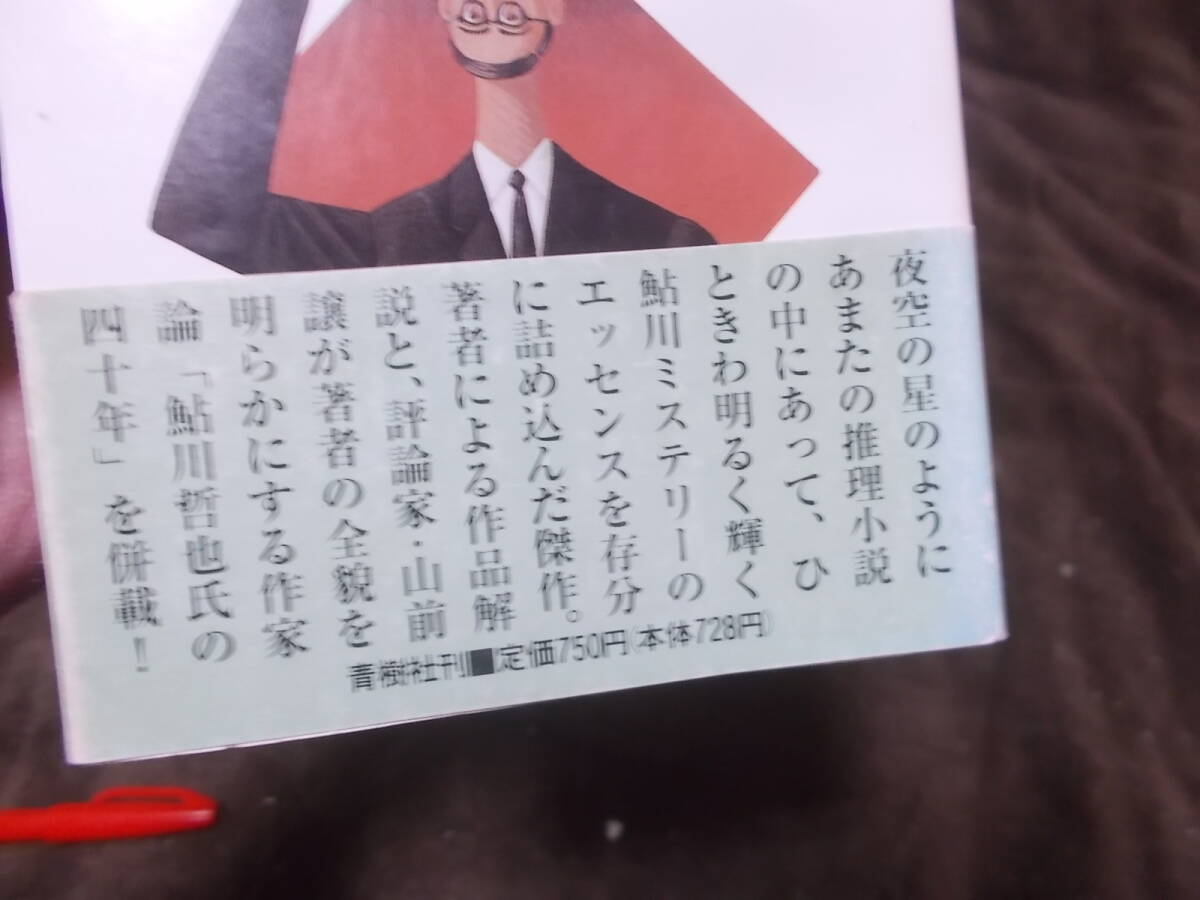 夜空の星のように
あまたの推理小説
の中にあって、ひ
ときわ明るく輝く
鮎川ミステリーの
エッセンスを存分
に詰め込んだ傑作。
著者による作品解
説と、評論家・山前
譲が著者の全貌を
明らかにする作家
論「鮎川哲也氏の
四十年」を併載！
青樹社刊■定価750円(本体728円)